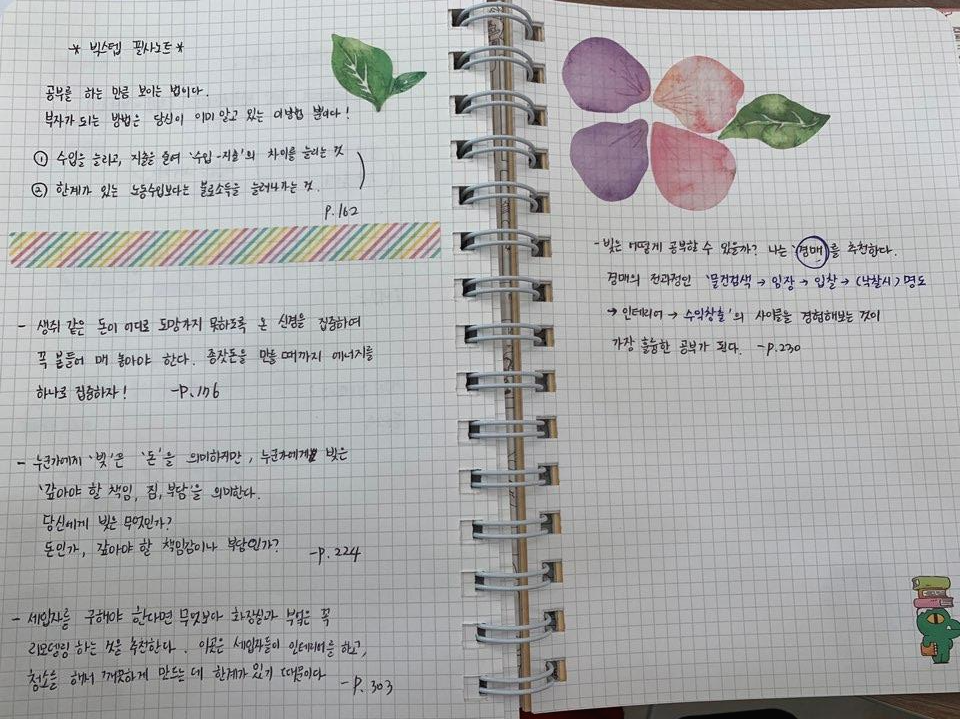 * 빅스텝 필사노트 *
공부를 하는 만큼 보이는 법이다.
부자가 되는 방법은 당신이 이미 알고 있는 이방법 뿐이다!
① 수입을 늘리고, 지출을 줄여 '수입-지출'의 차이를 늘리는 것
② 한계가 있는 노동수입보다는 불로소득을 늘려나가는 것.
p.162
- 생쥐 같은 돈이 어디로 도망가지 못하도록 온 신경을 집중하여
꼭 붙들어 매 놓아야 한다. 종잣돈을 만들 때까지 에너지를
하나로 집중하자! -p.176
- 누군가에게 '빚'은 '돈'을 의미하지만, 누군가에게 빚은
'갚아야 할 책임, 짐, 부담'을 의미한다.
당신에게 빚은 무엇인가?
돈인가, 갚아야 할 책임감이나 부담인가? -p.224
- 세입자를 구해야 한다면 무엇보다 화장실과 부엌은 꼭
리모델링 하는 것을 추천한다. 이곳은 세입자들이 인테리어를 하고,
청소를 해서 깨끗하게 만드는 데 한계가 있기 때문이다 -p.303
- 빚은 어떻게 공부할 수 있을까? 나는 '경매'를 추천한다.
경매의 전과정인 '물건검색 → 임장 → 입찰 → (낙찰시) 명도
→ 인테리어 → 수익창출'의 사이클을 경험해보는 것이
가장 훌륭한 공부가 된다. -p.230